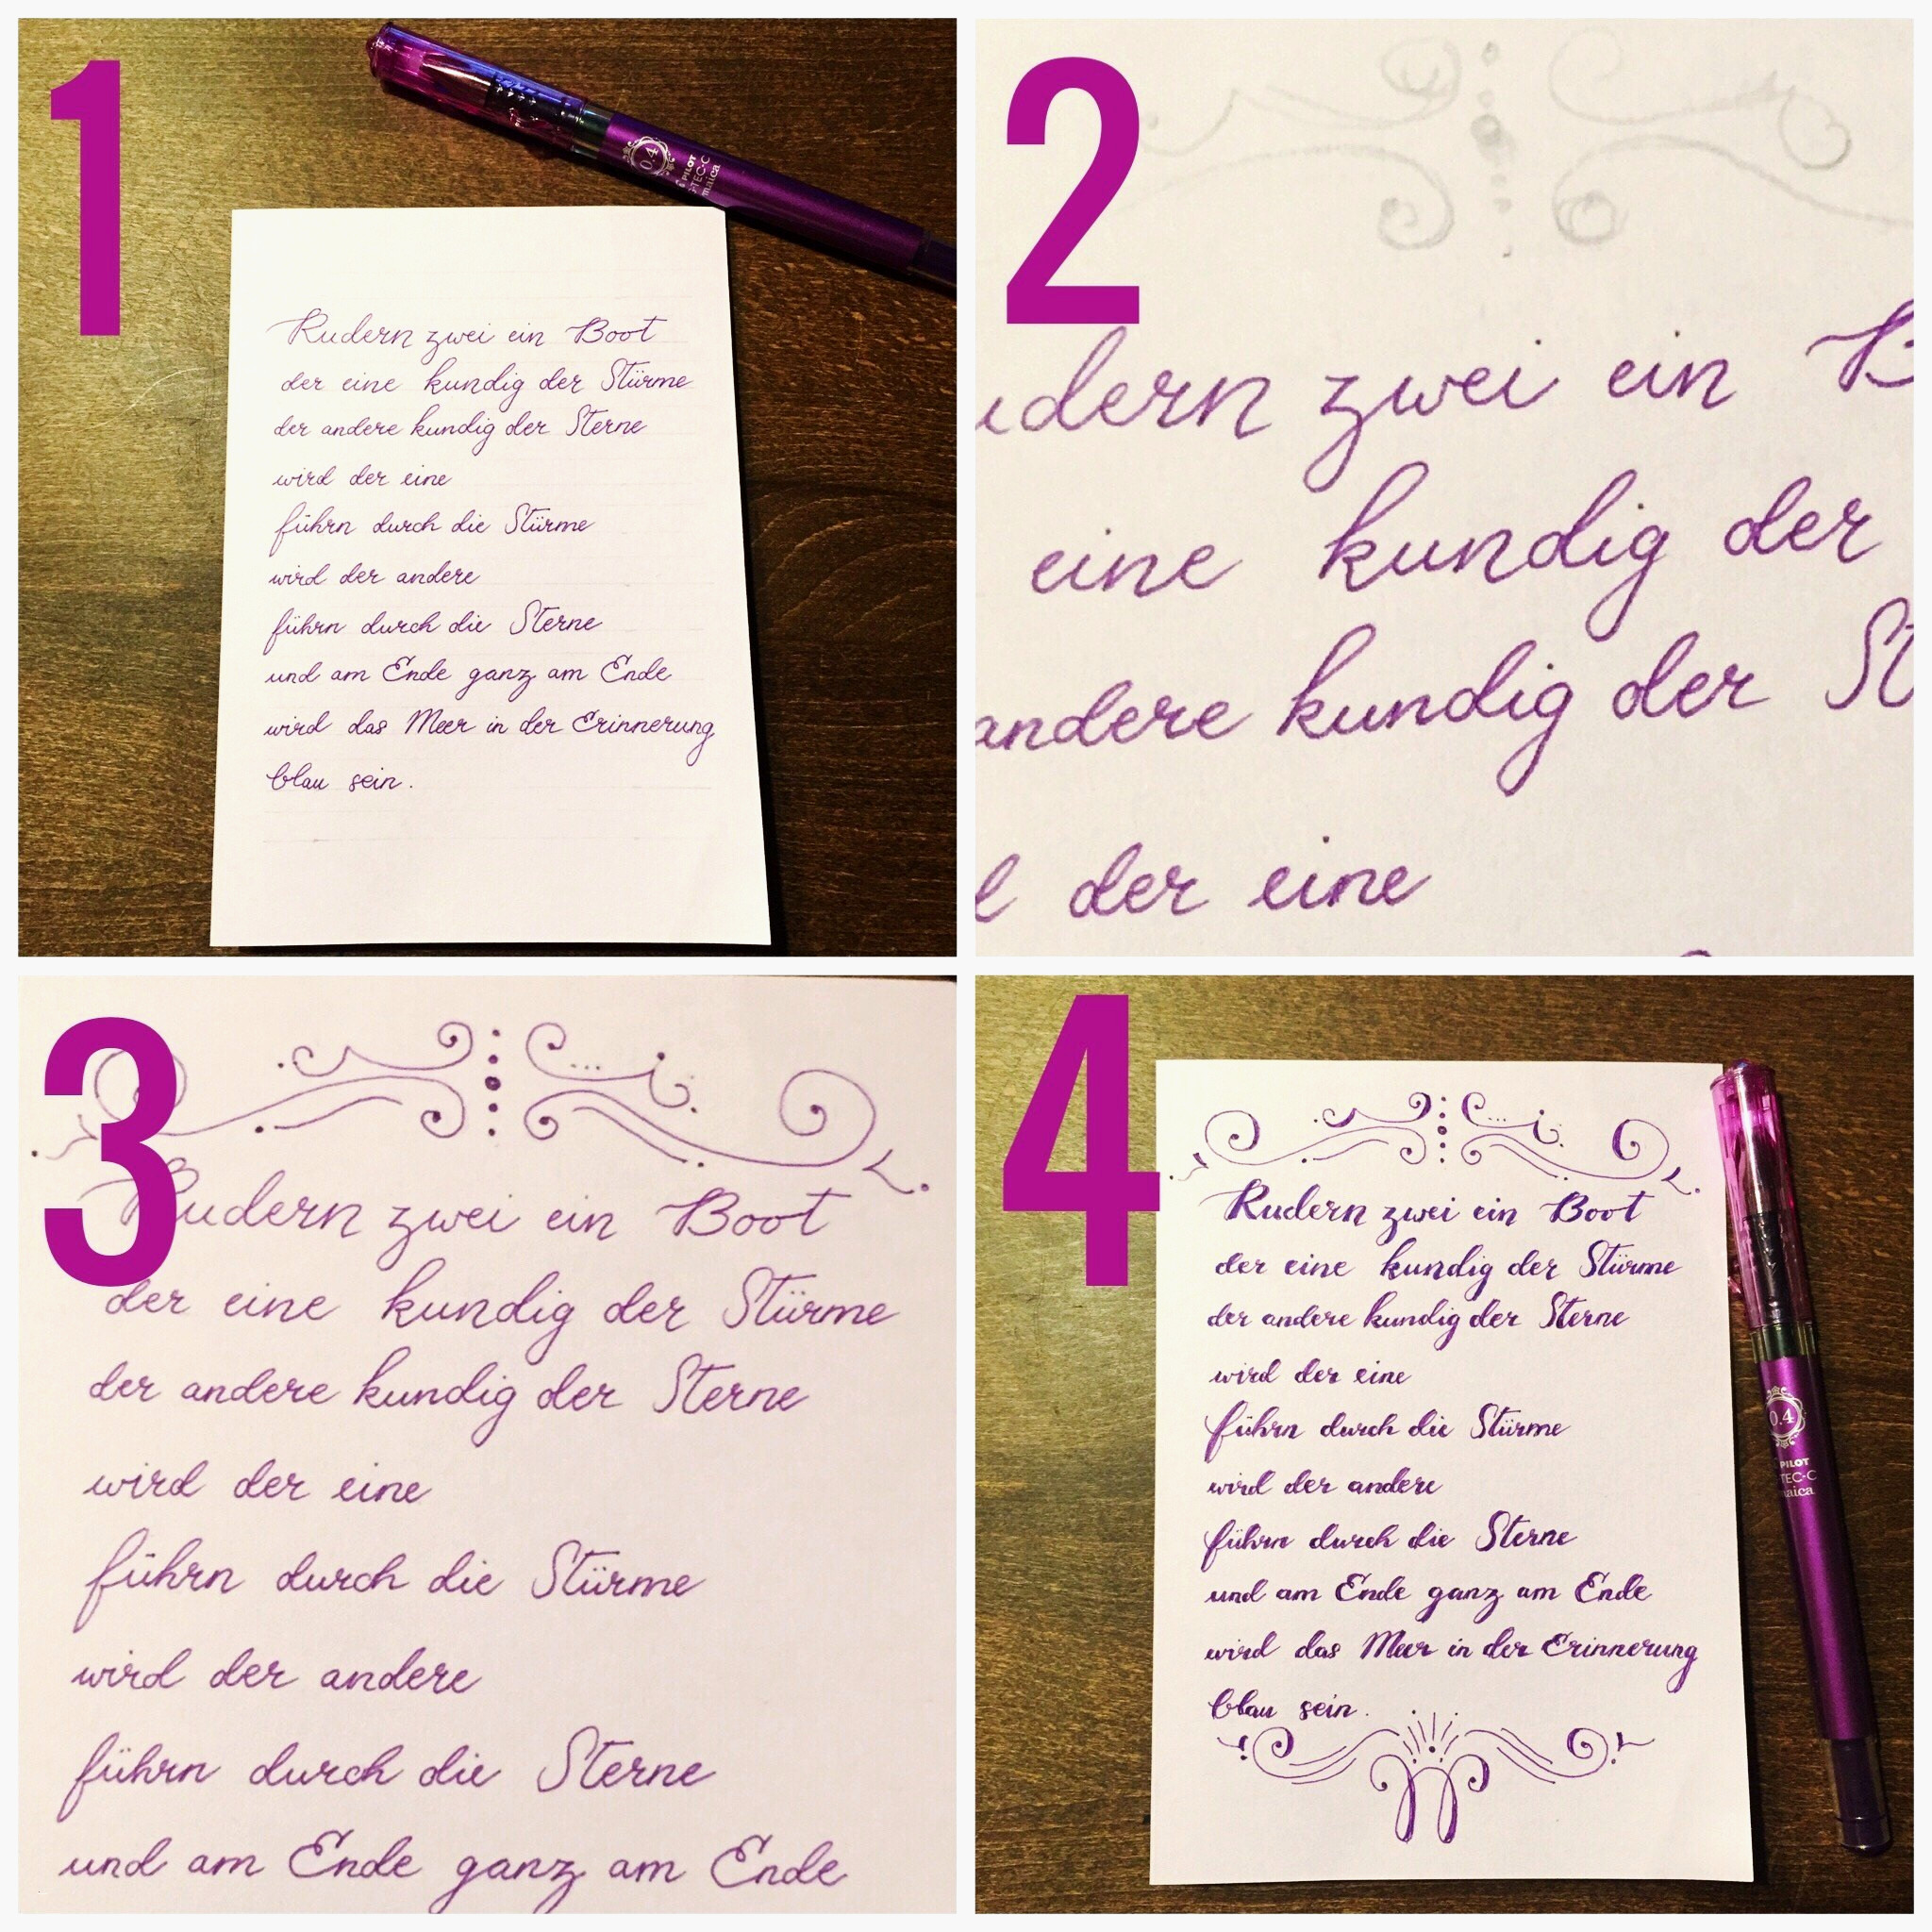 1
0.4
PILOT
TEC-C
maica
Rudern zwei ein Boot
der eine kundig der Stürme
der andere kundig der Sterne
wird der eine
führn durch die Stürme
wird der andere
führn durch die Sterne
und am Ende ganz am Ende
wird das Meer in der Erinnerung
blau sein.
2
udern zwei ein B
eine kundig der
andere kundig der St
d der eine
3
Rudern zwei ein Boot
der eine kundig der Stürme
der andere kundig der Sterne
wird der eine
führn durch die Stürme
wird der andere
führn durch die Sterne
und am Ende ganz am Ende
4
Rudern zwei ein Boot
der eine kundig der Stürme
der andere kundig der Sterne
wird der eine
führn durch die Stürme
wird der andere
führn durch die Sterne
und am Ende ganz am Ende
wird das Meer in der Erinnerung
blau sein.
0.4
PILOT
TEC-C
maica